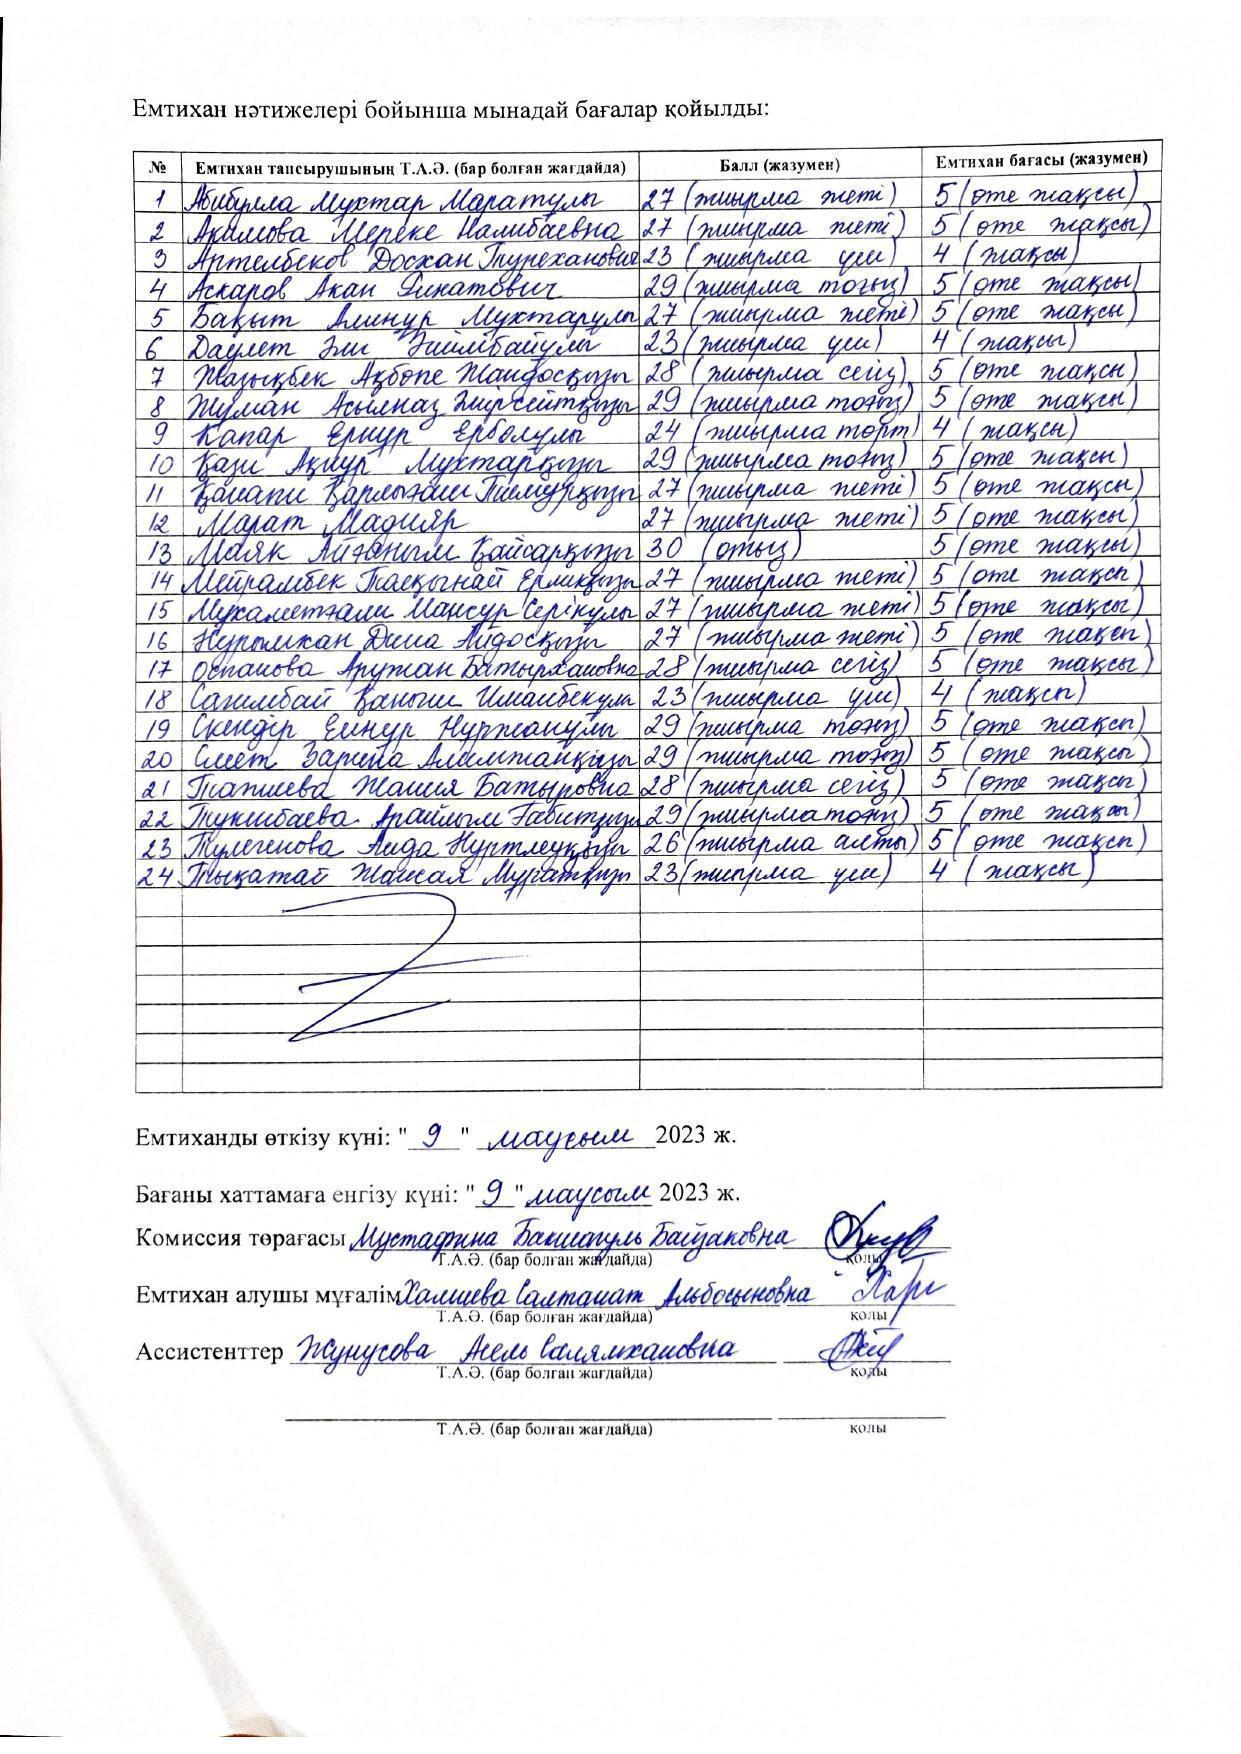 Емтихан нәтижелері бойынша мынадай бағалар қойылды:
№ Емтихан тапсырушының Т.А.Ә. (бар болған жағдайда) Балл (жазумен) Емтихан бағасы (жазумен)
1 Абибулла Мухтар Маратұлы 27 (жиырма жеті) 5 (өте жақсы)
2 Акимова Мереке Налибаевна 27 (жиырма жеті) 5 (өте жақсы)
3 Артелбеков Досхан 23 (жиырма үш) 4 (жақсы)
4 Аскаров Акан 29 (жиырма тоғыз) 5 (өте жақсы)
5 Бақыт Алинур Мухтарулы 27 (жиырма жеті) 5 (өте жақсы)
6 Даулет Әли 23 (жиырма үш) 4 (жақсы)
7 Жазықбек Ақбөпе Жандосқызы 28 (жиырма сегіз) 5 (өте жақсы)
8 Жуман Асылназ 29 (жиырма тоғыз) 5 (өте жақсы)
9 Капар Ернур Ерболулы 24 (жиырма төрт) 4 (жақсы)
10 Қази Ақнур Мухтарқызы 29 (жиырма тоғыз) 5 (өте жақсы)
11 Қанапи Қарлығаш 27 (жиырма жеті) 5 (өте жақсы)
12 Марат Мадияр 27 (жиырма жеті) 5 (өте жақсы)
13 Маяк Айғаным Қайсарқызы 30 (отыз) 5 (өте жақсы)
14 Мейрамбек Тасқынай Ерликқызы 27 (жиырма жеті) 5 (өте жақсы)
15 Мухаметғали Мансур Серікулы 27 (жиырма жеті) 5 (өте жақсы)
16 Нурымхан Дина Айдосқызы 27 (жиырма жеті) 5 (өте жақсы)
17 Оспанова Аружан Батырхановна 28 (жиырма сегіз) 5 (өте жақсы)
18 Сагимбай Қаныш Иманбекулы 23 (жиырма үш) 4 (жақсы)
19 Скендір Елнур Нуржанулы 29 (жиырма тоғыз) 5 (өте жақсы)
20 Смет Зарина Алимжанқызы 29 (жиырма тоғыз) 5 (өте жақсы)
21 Жания Батыровна 28 (жиырма сегіз) 5 (өте жақсы)
22 Арайлым Ғабитқызы 29 (жиырма тоғыз) 5 (өте жақсы)
23 Тулегенова Аида Нуртлеуқызы 26 (жиырма алты) 5 (өте жақсы)
24 Тықатай Жансая Муратқызы 23 (жиырма үш) 4 (жақсы)
Емтиханды өткізу күні: "9" маусым 2023 ж.
Бағаны хаттамаға енгізу күні: "9" маусым 2023 ж.
Комиссия төрағасы Мустафина Бакшагуль Байзаковна
Т.А.Ә. (бар болған жағдайда) қолы
Емтихан алушы мұғалім Халиева Салтанат Альбосыновна
Т.А.Ә. (бар болған жағдайда) қолы
Ассистенттер Жунусова Асель Салямхановна
Т.А.Ә. (бар болған жағдайда) қолы
Т.А.Ә. (бар болған жағдайда) қолы